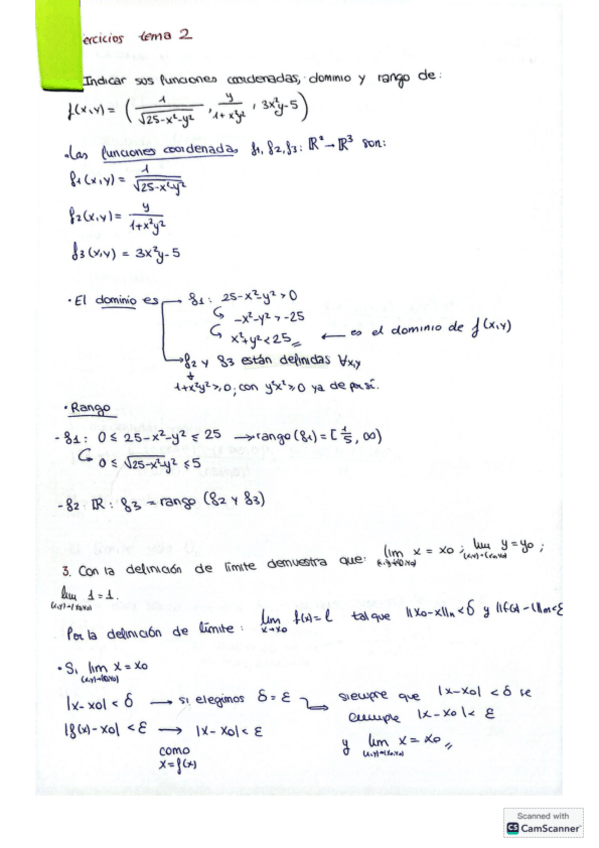 ercicios tema 2
Indicar sus funciones coordenadas, dominio y rango de:
f(x,y) = ( 1/√25-x²-y² , y/1+x²y² , 3x²y-5 )
• Las funciones coordenada, f1, f2, f3: ℝ² → ℝ³ son:
f1(x,y) = 1/√25-x²-y²
f2(x,y) = y/1+x²y²
f3(x,y) = 3x²y-5
• El dominio es f1: 25-x²-y² > 0
-x²-y² > -25
x²+y² < 25 ← es el dominio de f(x,y)
→ f2 y f3 están definidas ∀x,y
1+x²y² ≥ 0; con y²x² ≥ 0 ya de por sí.
• Rango
- f1: 0 ≤ 25-x²-y² ≤ 25 → rango (f1) = [1/5, ∞)
0 ≤ √25-x²-y² ≤ 5
- f2: ℝ: f3 = rango (f2 y f3)
3. Con la definición de límite demuestra que: lim x = x0 ; lim y = y0 ;
(x,y)→(x0,y0) (x,y)→(x0,y0)
lim 1 = 1.
(x,y)→(x0,y0)
Por la definición de límite: lim f(x) = l tal que ||x0-x||n < δ y ||f(x)-l||m < ε
x→x0
• Si lim x = x0
(x,y)→(x0,y0)
|x-x0| < δ → si elegimos δ = ε siempre que |x-x0| < δ se
|f(x)-x0| < ε → |x-x0| < ε cumple |x-x0| < ε
como y lim x = x0
x = f(x) (x,y)→(x0,y0)
Scanned with
CS CamScanner